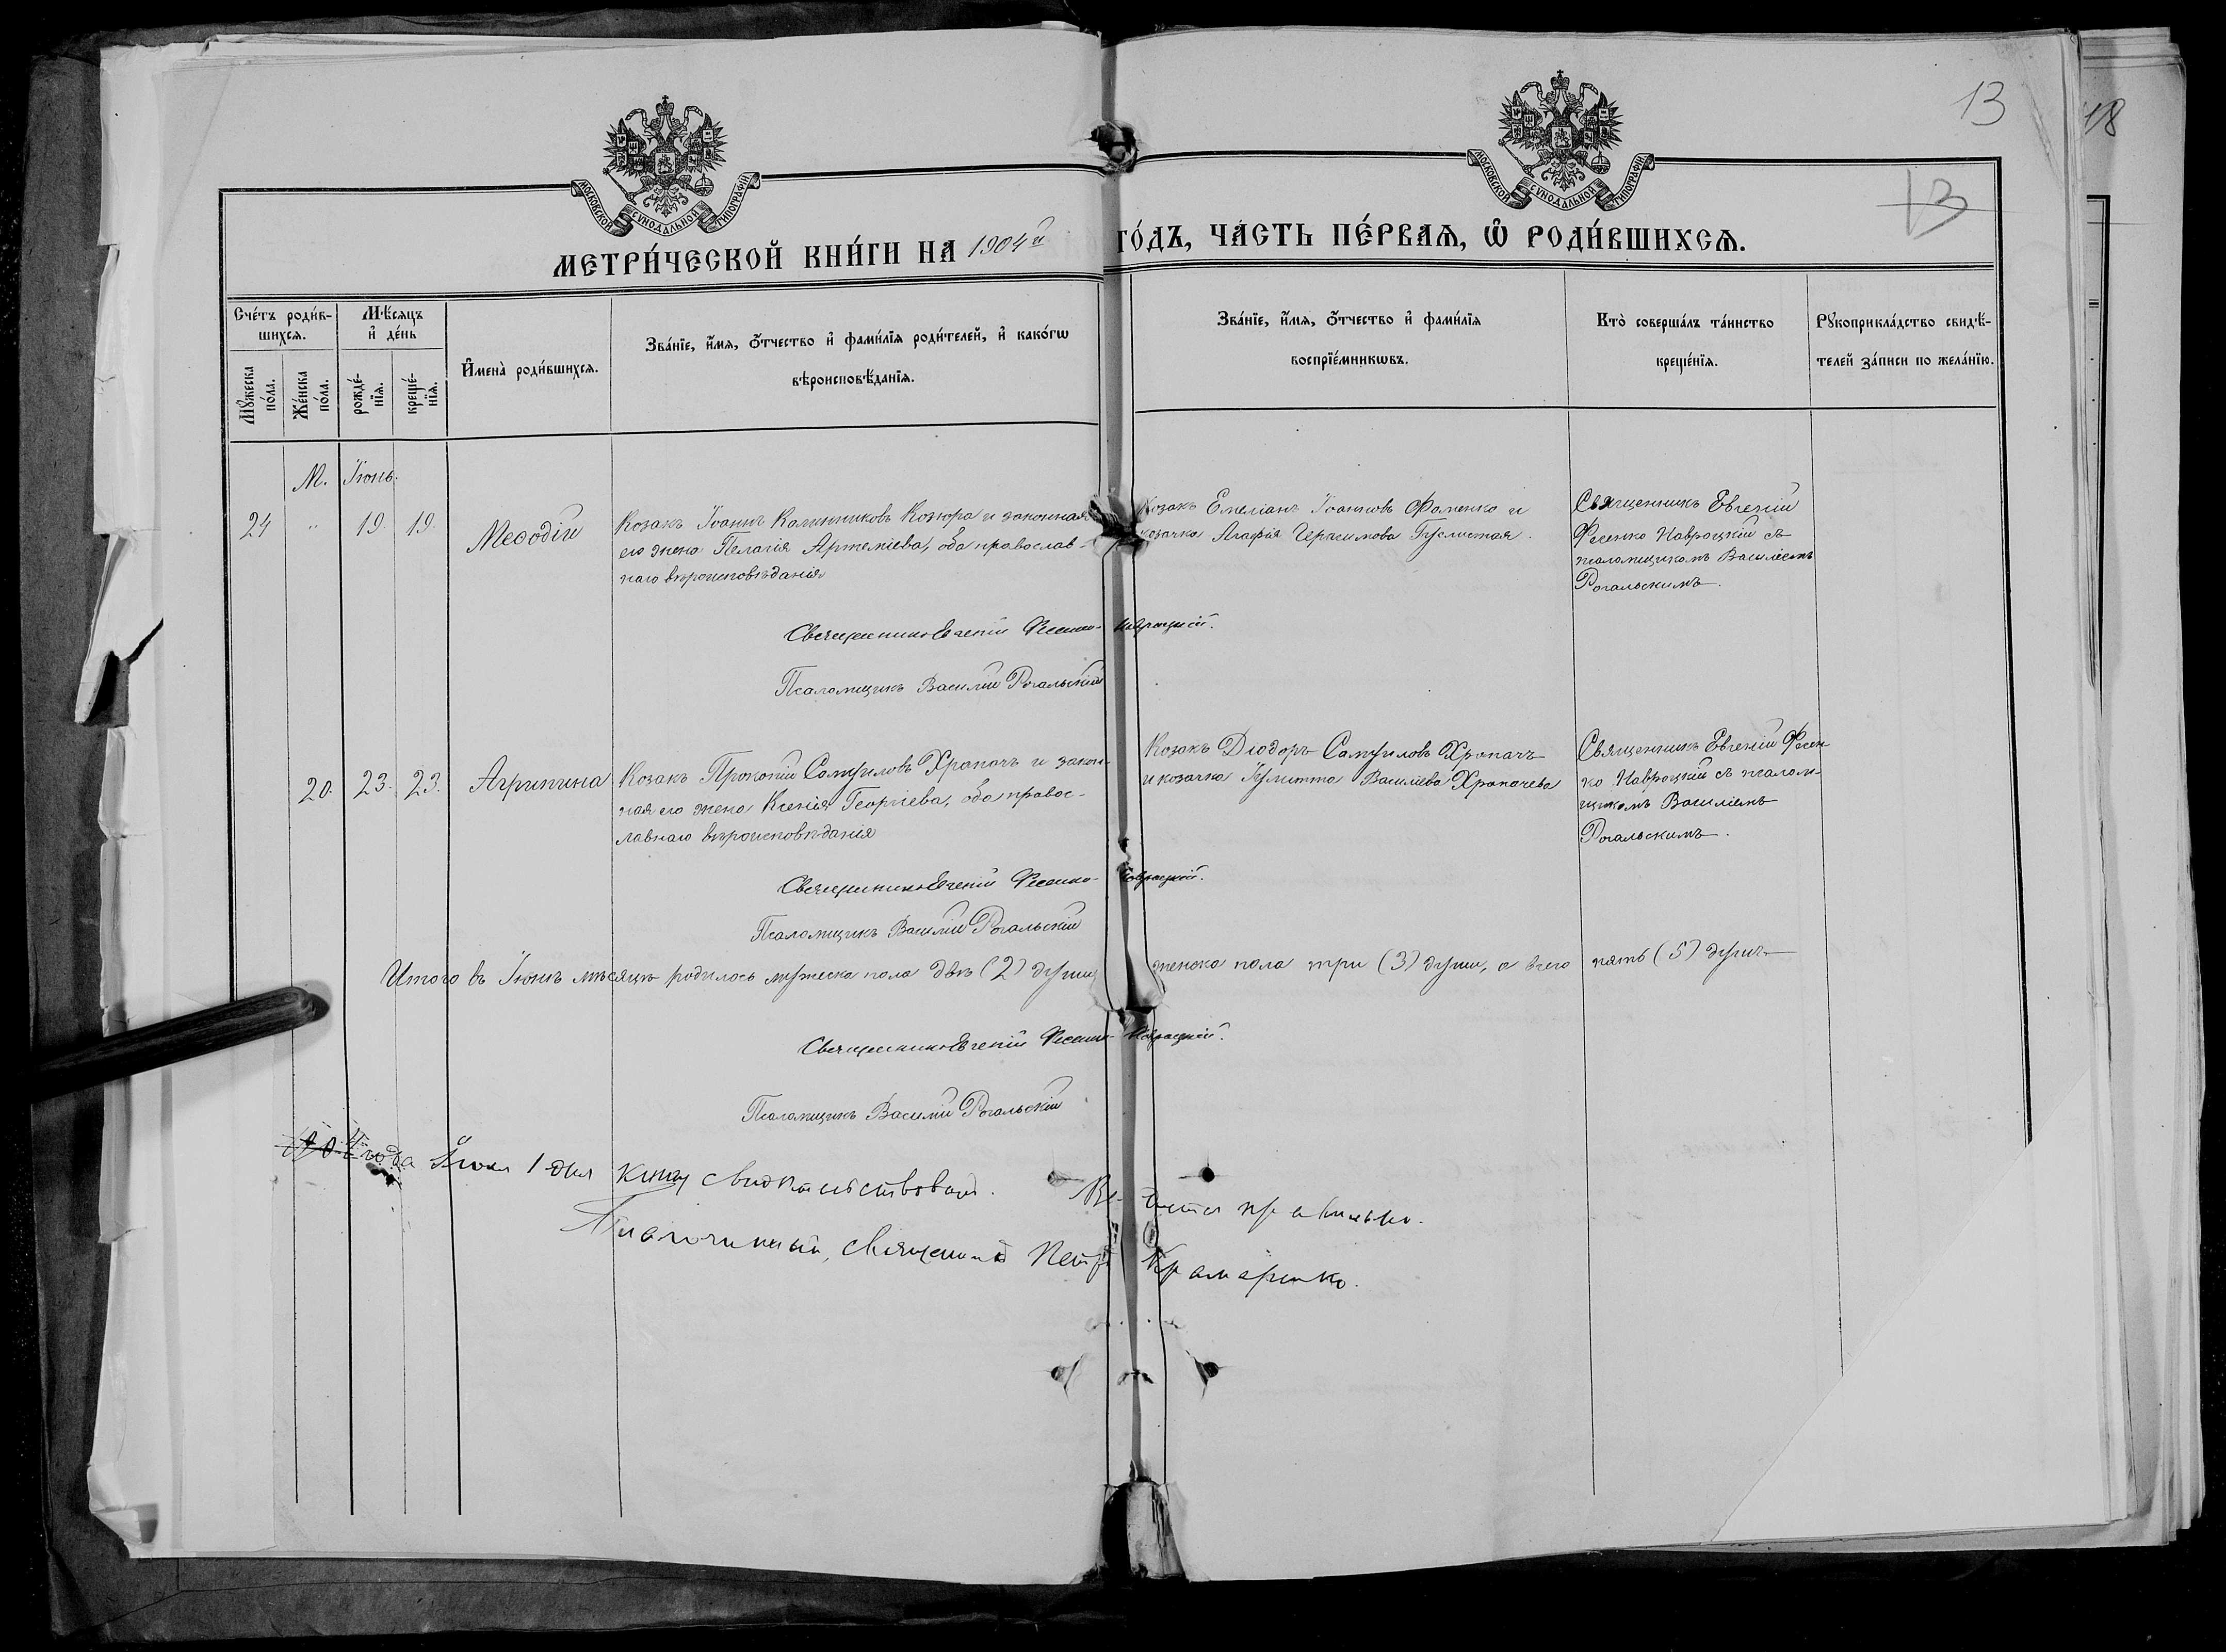 13
18
13
МОСКОВСКОЙ СѴНОДАЛЬНОЙ ТИПОГРАФІИ
МОСКОВСКОЙ СѴНОДАЛЬНОЙ ТИПОГРАФІИ
МЕТРИ́ЧЕСКОЙ КНИ́ГИ НА 1904й ГО́ДЪ, ЧА́СТЬ ПЕ́РВАѦ, Ѽ РОДИ́ВШИХСѦ.
Сче́тъ роди́в-
шихсѧ.
Мꙋжеска по́ла.
Же́нска по́ла.
Мѣ́сяцъ и де́нь
рожде́-
нїѧ.
креще́-
нїѧ.
Имена̀ роди́вшихсѧ.
Зва́нїе, и́мѧ, ѻ́тчество и фами́лїѧ роди́телей, и како́гѡ
вѣроисповѣ́данїѧ.
Зва́нїе, и́мѧ, ѻ́тчество и фами́лїѧ
воспрїе́мникѡвъ.
Кто̀ соверша́лъ та́инство
креще́нїѧ.
Рꙋкоприкла́дство свидѣ́-
телей за́писи по жела́нїю.
М. Іюнь.
24 " 19. 19. Меѳодій
Козакъ Іоаннъ Калинниковъ Козюра и законная
его жена Пелагія Артеміева, оба православ-
наго вѣроисповѣданія
Козакъ Емеліанъ Іоанновъ Фоменко и
козачка Агафія Герасимова Гуслистая.
Священникъ Евгеній
Фесенко Навроцкій съ
псаломщикомъ Василіемъ
Рогальскимъ.
Священникъ Евгеній Фесенко-Навроцкій.
Псаломщикъ Василій Рогальскій
20. 23. 23. Агрипина
Козакъ Прокопій Самуиловъ Хропачъ и закон-
ная его жена Ксенія Георгіева, оба правос-
лавнаго вѣроисповѣданія
Козакъ Діодоръ Самуиловъ Хропачъ
и козачка Іулитта Василіева Хропачева
Священникъ Евгеній Фесен-
ко Навроцкій съ псалом-
щикомъ Василіемъ
Рогальскимъ.
Священникъ Евгеній Фесенко-Навроцкій.
Псаломщикъ Василій Рогальскій
Итого въ Іюнѣ мѣсяцѣ родилось мужеска пола двѣ (2) души, женска пола три (3) души, а всего пять (5) душъ
Священникъ Евгеній Фесенко-Навроцкій.
Псаломщикъ Василій Рогальскій
1904 года Іюля 1 дня книгу свидѣтельствовалъ. Ведется правильно.
Благочинный, священникъ Петръ Крамаренко.